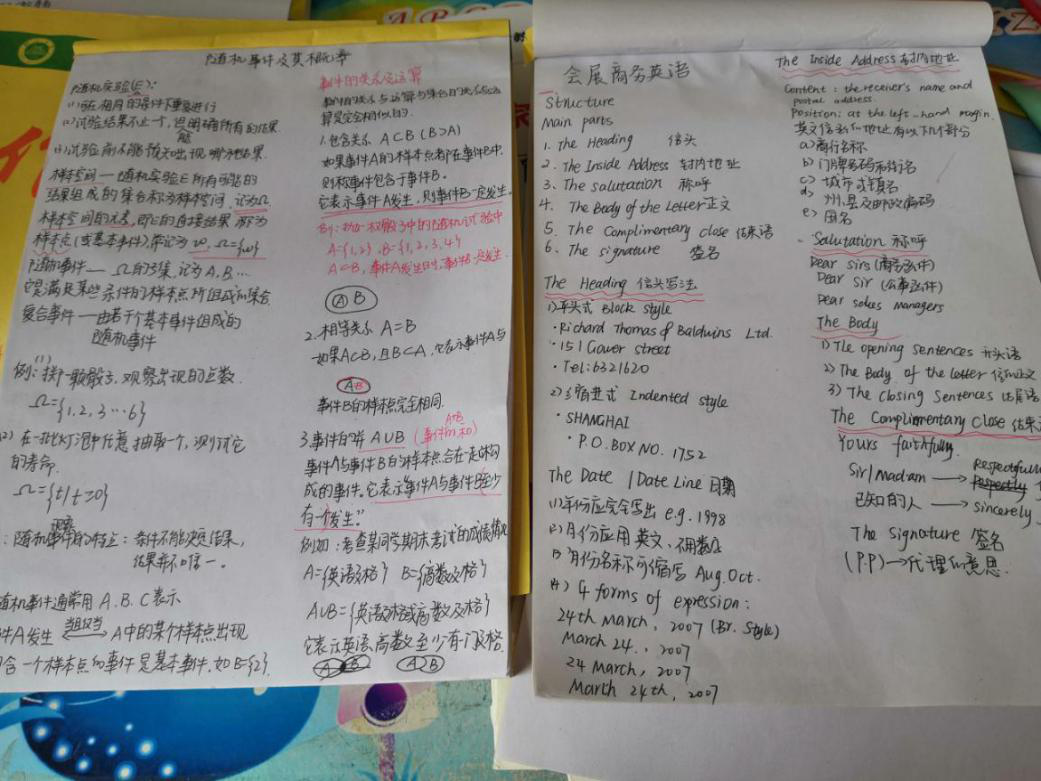 随机事件及其概率
随机实验(E):
(1)可在相同的条件下重复进行
(2)试验结果不止一个,但能明确所有的结果.
(3)试验前不能预知出现哪种结果.
样本空间——随机实验E所有可能的
结果组成的集合称为样本空间,记为Ω
样本空间的元素,即E的直接结果,称为
样本点(或基本事件)常记为ω,Ω={ω}
随机事件——Ω的子集,记为A,B…
它是满足某些条件的样本点所组成的集合.
复合事件——由若干个基本事件组成的
随机事件
例:(1)掷一颗骰子,观察出现的点数.
Ω={1,2,3…6}
(2)在一批灯泡中任意抽取一个,测试它
的寿命.
Ω={t/t≥0}
:随机现象的特点:条件不能决定结果,
结果并不唯一。
随机事件通常用A.B.C表示
件A发生 当且仅当 A中的某个样本点出现
含一个样本点的事件是基本事件.如B={2}.
事件的关系及运算
事件的关系与运算与集合的关系与运
算是完全相似的.
1.包含关系 A⊂B (B⊃A)
如果事件A的样本点都在事件B中.
则称事件包含于事件B.
它表示事件A发生,则事件B一定发生.
例:抛一枚骰子中的随机试验中
A={1,2},B={1,2,3,4}
A⊂B,事件A发生时,事件B一定发生.
A B
2.相等关系 A=B
如果A⊂B,且B⊂A,它表示事件A与
A B
事件B的样本点完全相同.
3.事件的并 A∪B (事件的和) A+B
事件A与事件B的样本点合在一起构
成的事件.它表示事件A与事件B至少
有一个发生."
例如:考查某同学期末考试的成绩情况
A={英语及格} B={高数及格}
A∪B={英语及格或高数及格}
它表示英语、高数至少有一门及格.
A B A B
会展商务英语
Structure
Main parts
1. The Heading 信头
2. The Inside Address 封内地址
3. The salutation 称呼
4. The Body of the Letter 正文
5. The Complimentary close 结束语
6. The signature 签名
The Heading 信头写法
1)平头式 Block style
·Richard Thomas & Baldwins Ltd.
·151 Gower street
·Tel:6321620
2)缩进式 Indented style
·SHANGHAI
·P.O.BOX NO. 1752
The Date / Date Line 日期
(1)年份应完全写出 e.g. 1998
(2)月份应用英文、不用数字
(3)月份名称可缩写 Aug.Oct.
(4) 4 forms of expression:
24th March, 2007 (Br. Style)
March 24., 2007
24 March, 2007
March 24th, 2007
The Inside Address 封内地址
Content: the receiver's name and
postal address.
Position: at the left-hand margin.
英文信头和地址有以下几部分
a)商行名称
b)门牌号码和街名
c)城市或镇名
d)州、县及邮政编码
e)国名
Salutation 称呼
Dear Sirs (商务函件)
Dear Sir (公事函件)
Dear sales Managers
The Body
1) The opening sentences 开头语
2) The Body of the letter 信的正文
3) The Closing Sentences 结尾语
The Complimentary Close 结束语
Yours faithfully.
Sir/Madam → Respectfully
已知的人 → sincerely
The signature 签名
(P.P)→代理的意思.